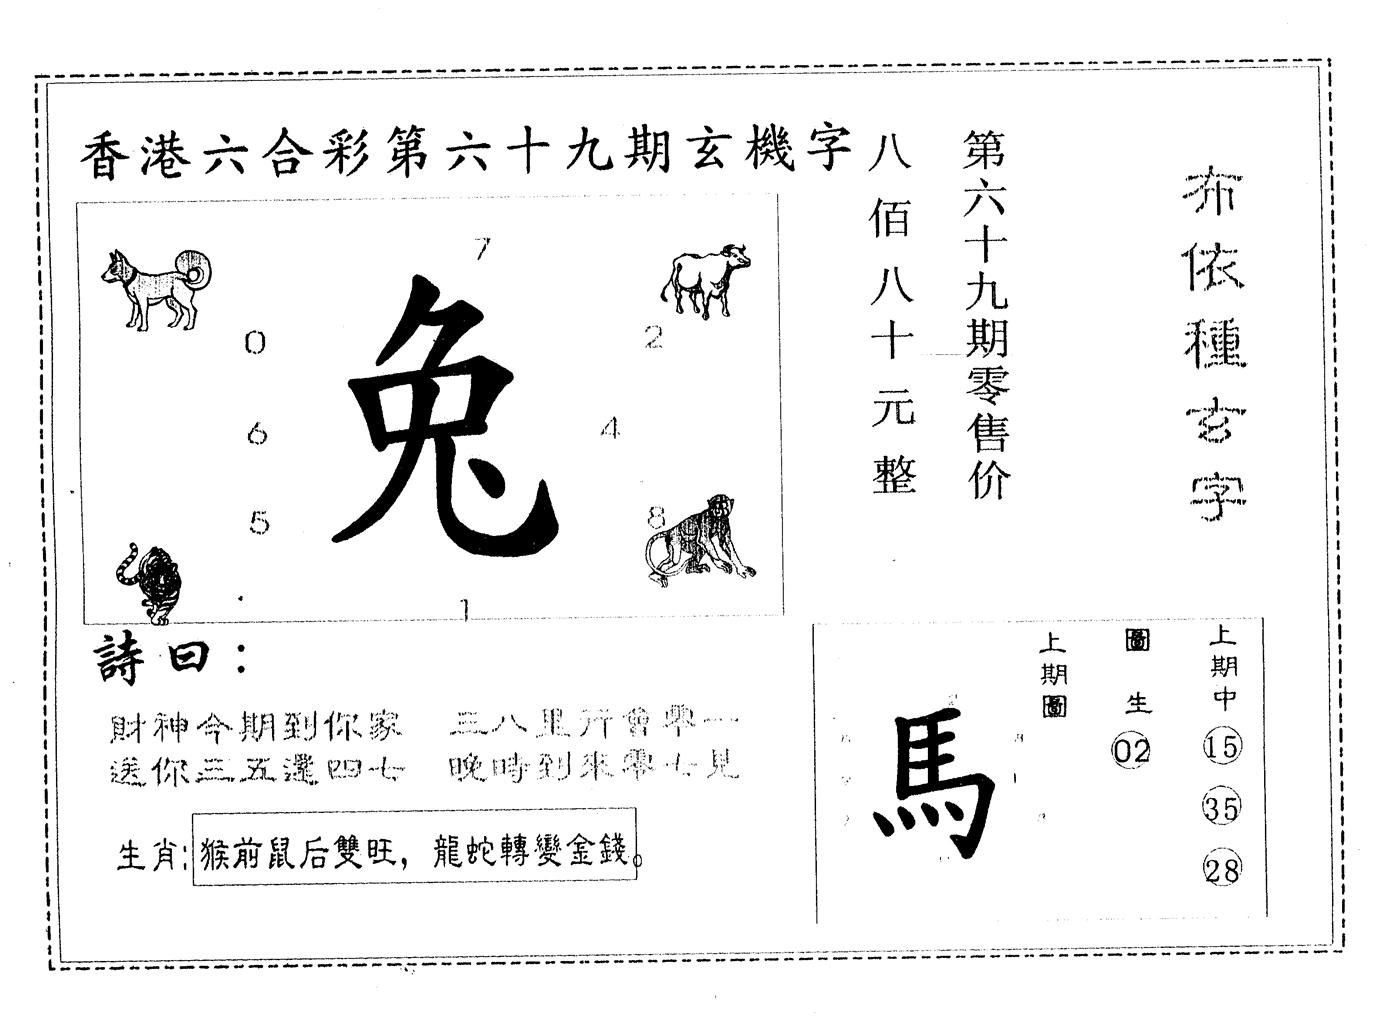 香港六合彩第六十九期玄機字
第六十九期零售价
八佰八十元整
布依種玄字
7
0
2
兔
6
4
5
8
1
詩曰：
財神今期到你家 三八里开會零一
送你三五還四七 晚時到來零七見
生肖:猴前鼠后雙旺，龍蛇轉變金錢。
上期中
15
35
28
圖生
02
上期圖
馬